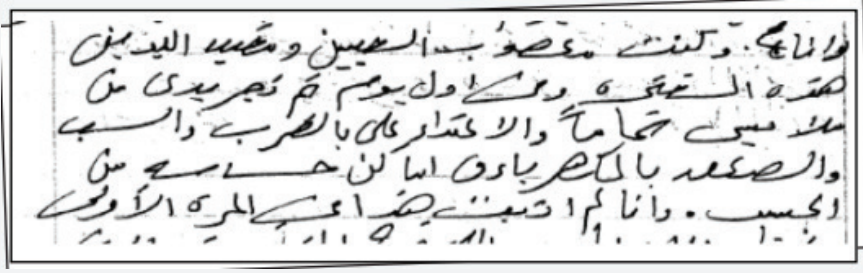 وانام. وكنت معصوب العينين ومقيد اليدين
هذه الفترة ومن اول يوم تم تجريدي من
ملابسي تماماً والاعتداء علي بالضرب والسب
والصعق بالكهرباء في اماكن حساسه من
الجسم. وانا لم اكن هذا في المرة الأولى